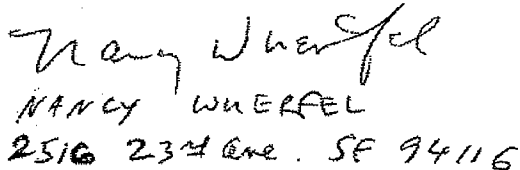 Nancy Wuerfel
NANCY WUERFEL
2516 23rd Ave. SF 94116